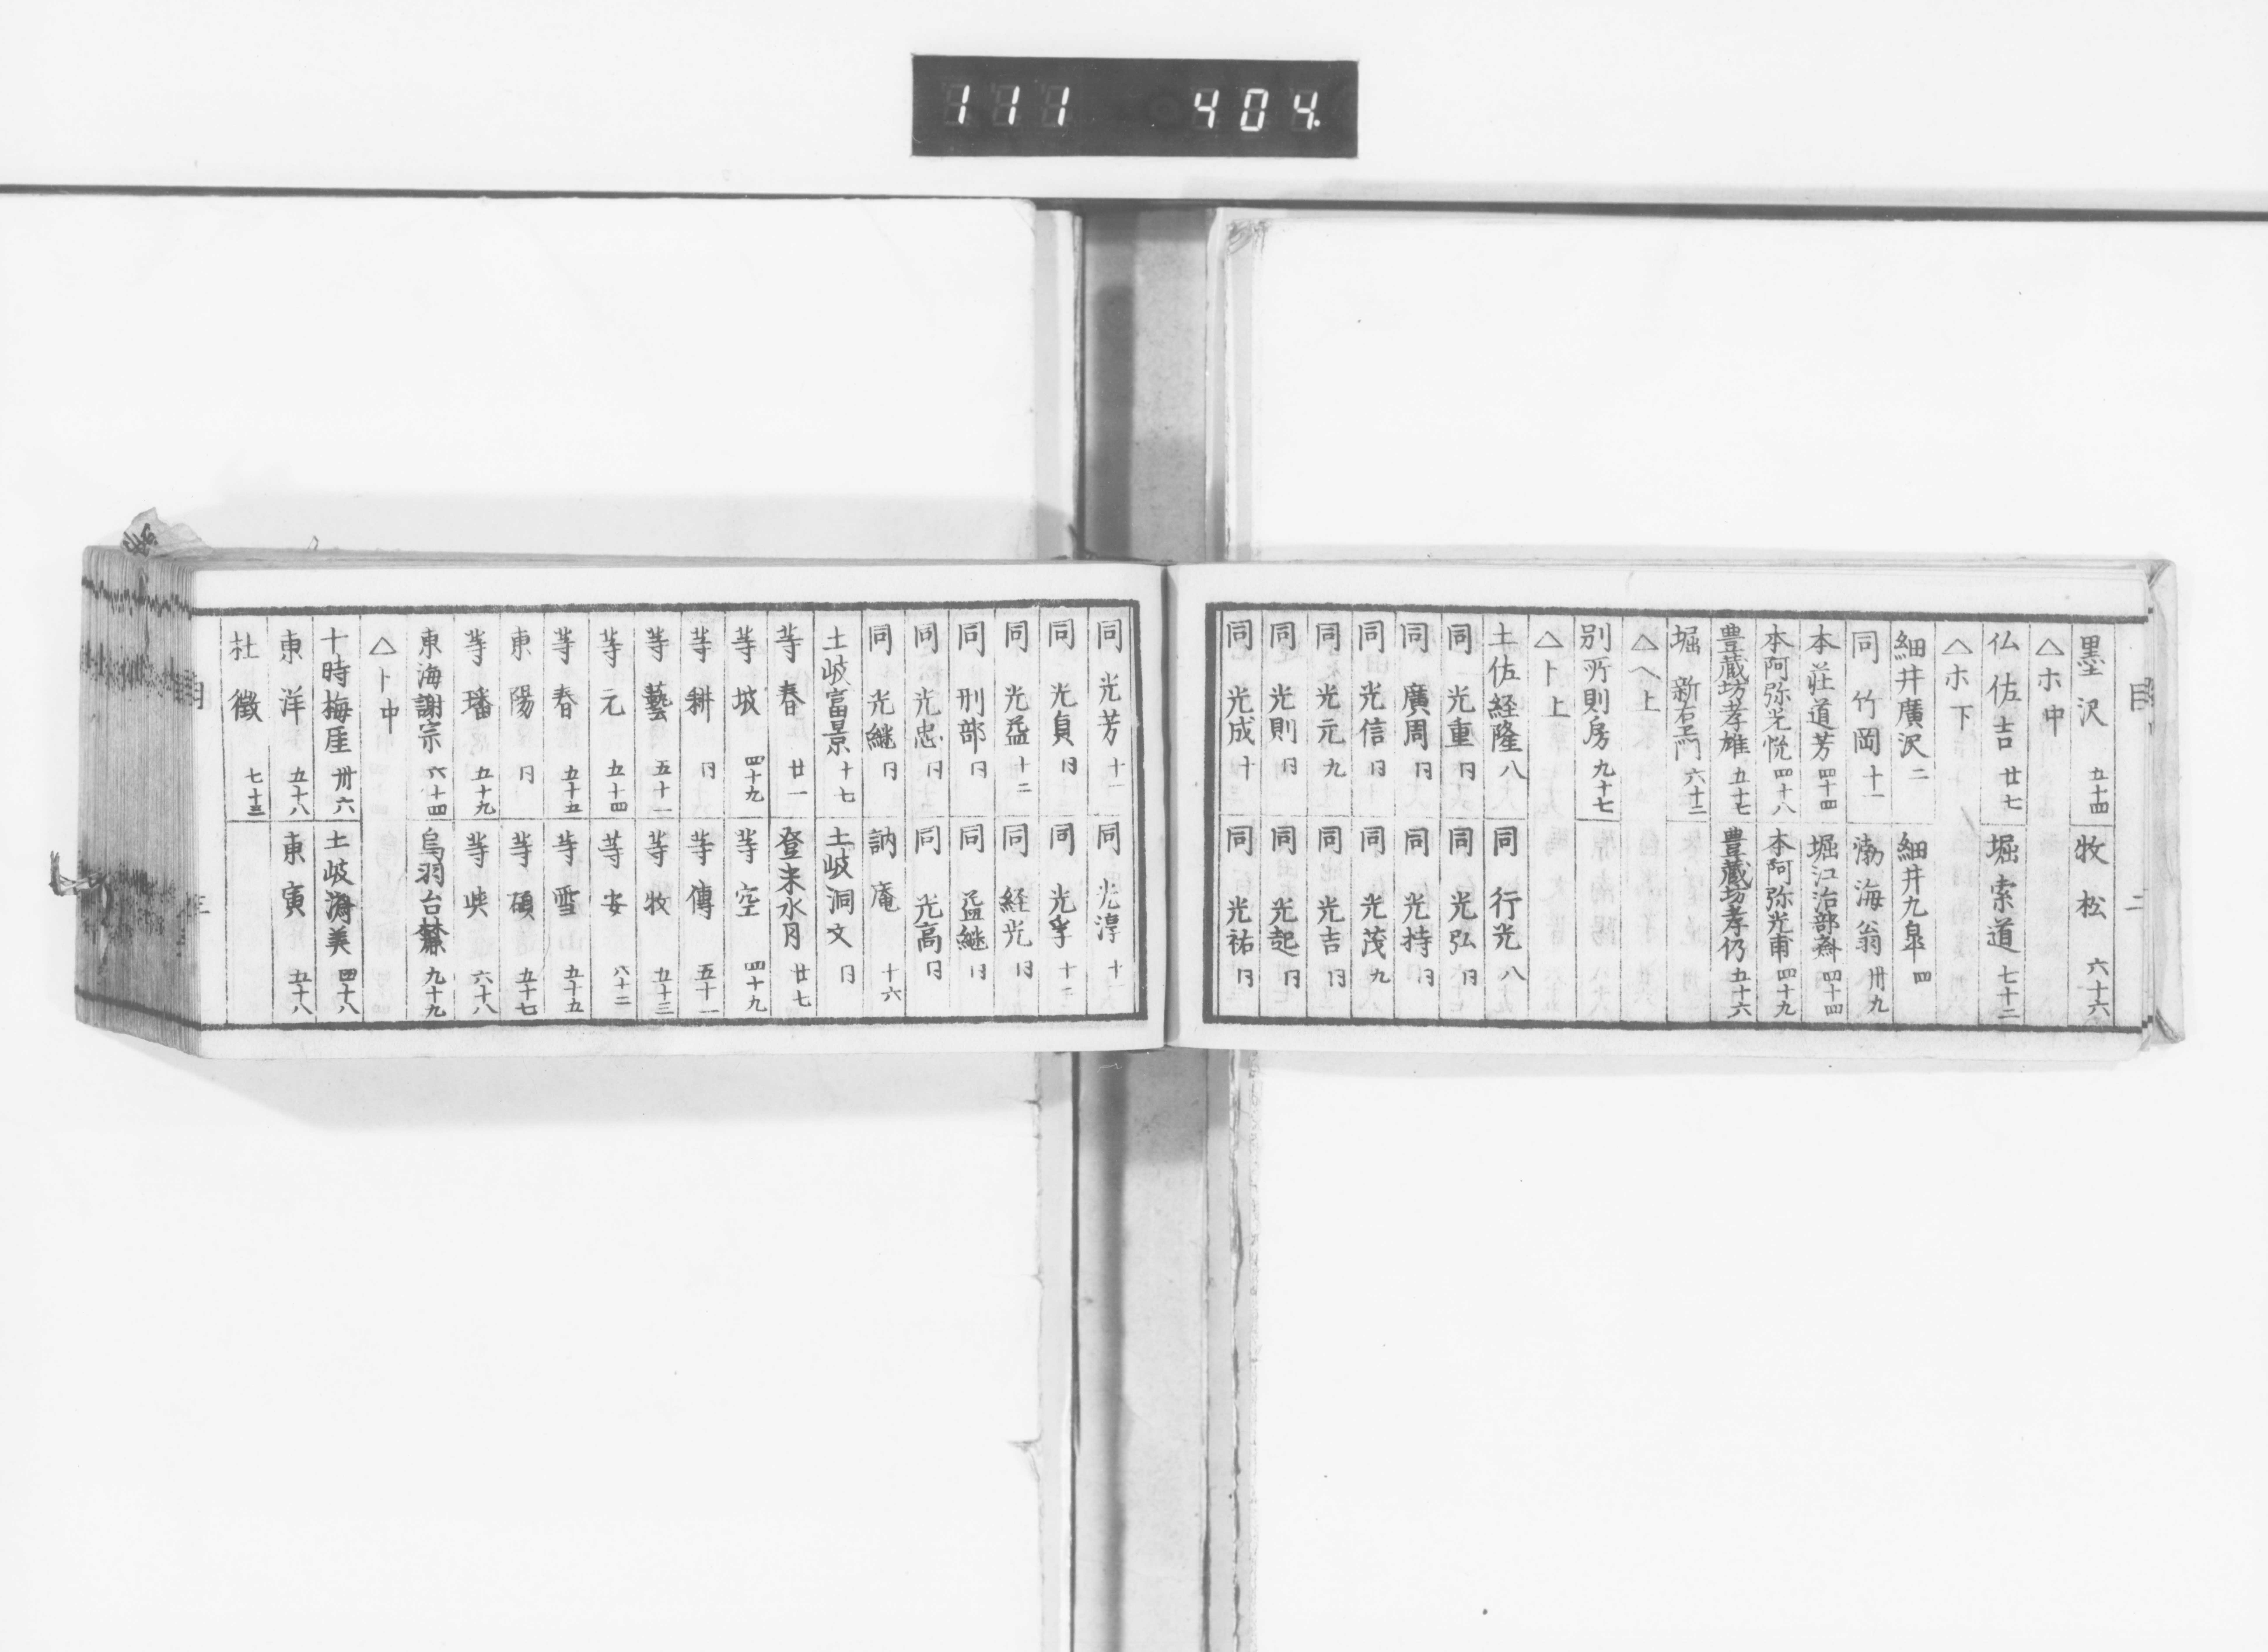 111 404.
目 二
墨沢 五十四 牧松 六十六
△ホ中
仏佐吉 廿七 堀索道 七十二
△ホ下
細井廣沢 二 細井九皐 四
同竹岡 十一 渤海翁 卅九
本莊道芳 四十四 堀江治部 四十四
本阿弥光悦 四十八 本阿弥光甫 四十九
豊蔵坊孝雄 五十七 豊蔵坊孝仍 五十六
堀新右エ門 六十二
△ヘ上
別所則房 九十七
△ト上
土佐経隆 八 同行光 八
同光重 同 同光弘 同
同廣周 同 同光持 同
同光信 同 同光茂 九
同光元 九 同光吉 同
同光則 同 同光起 同
同光成 十 同光祐 同
同光芳 十一 同光淳 十一
同光貞 同 同光孚 十二
同光益 十二 同経光 同
同刑部 同 同益継 同
同光忠 同 同光高 同
同光継 同 訥庵 十六
土岐富景 十七 土岐洞文 同
等春 廿一 登末水月 廿七
等坡 四十九 等空 四十九
等耕 同 等傳 五十一
等藝 五十一 等牧 五十三
等元 五十四 等安 六十二
等春 五十五 等雪 五十五
東陽 同 等碩 五十七
等璠 五十九 等 六十八
東海謝宗 六十四 鳥羽台麓 九十九
△ト中
十時梅厓 卅六 土岐済美 四十八
東洋 五十八 東寅 五十八
杜徴 七十三
三